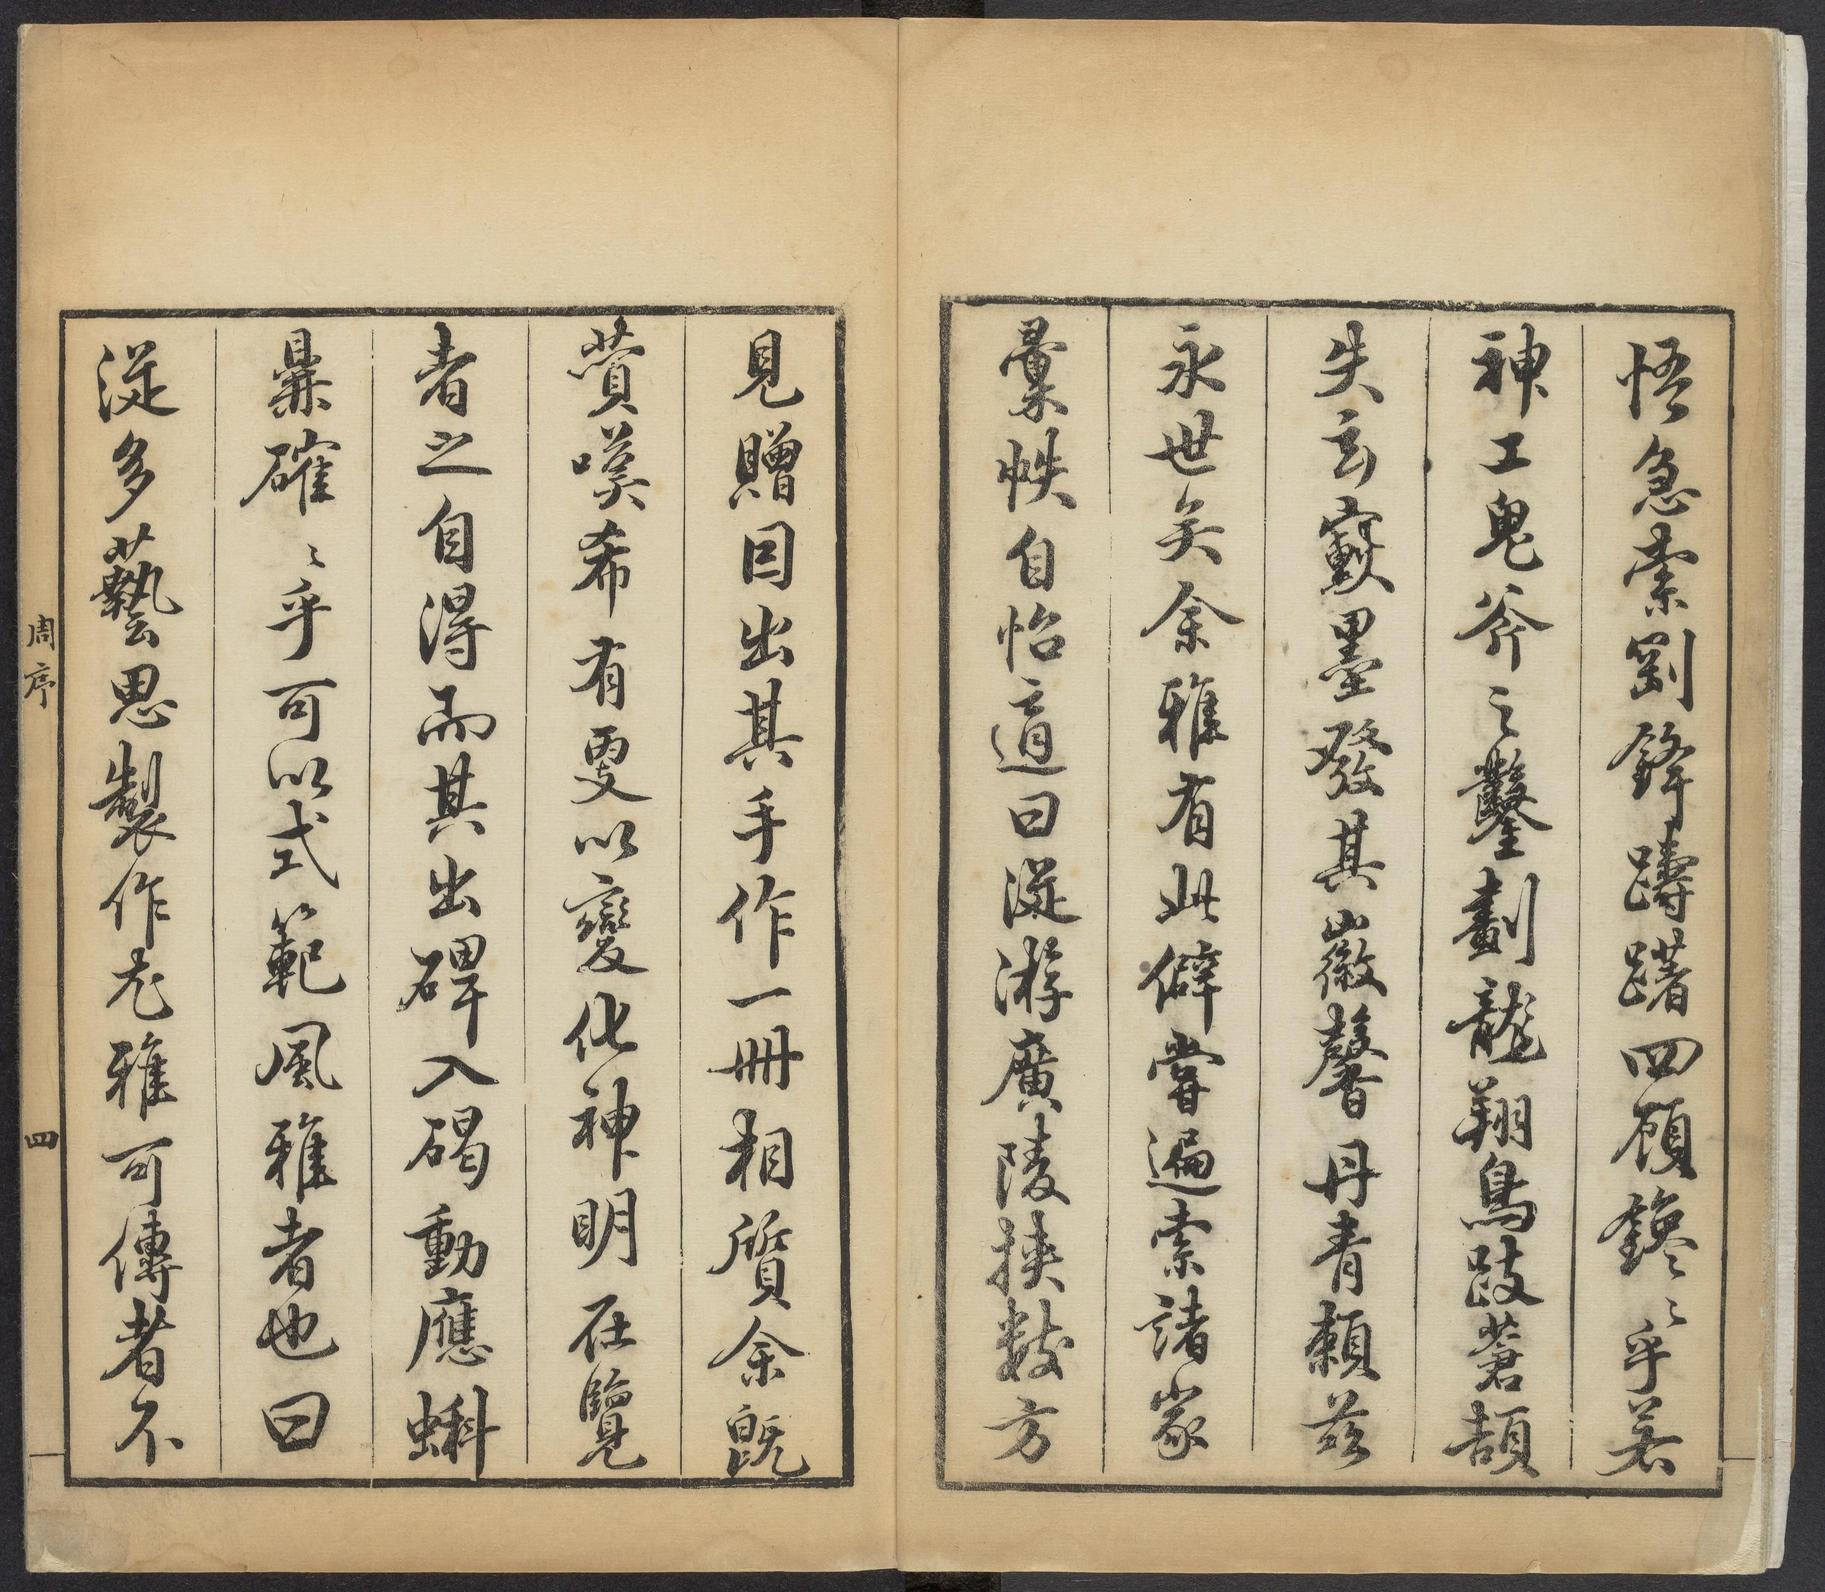 悟急索剛鋒躊躇四顧鑱〻乎若
神工鬼斧之鑿劃龍翔鳥跂蒼頡
失玄竅墨發其徽馨丹青賴茲
永世矣余雅有此僻嘗遍索諸家
彙帙自怡適曰從游廣陵挾數方
見贈因出其手作一冊相質余既
賞嘆希有更以變化神明在覽
者之自得而其出碑入碣動應蝌
鼎確〻乎可以式範風雅者也曰
從多藝思製作尤雅可傳者不
周序
四